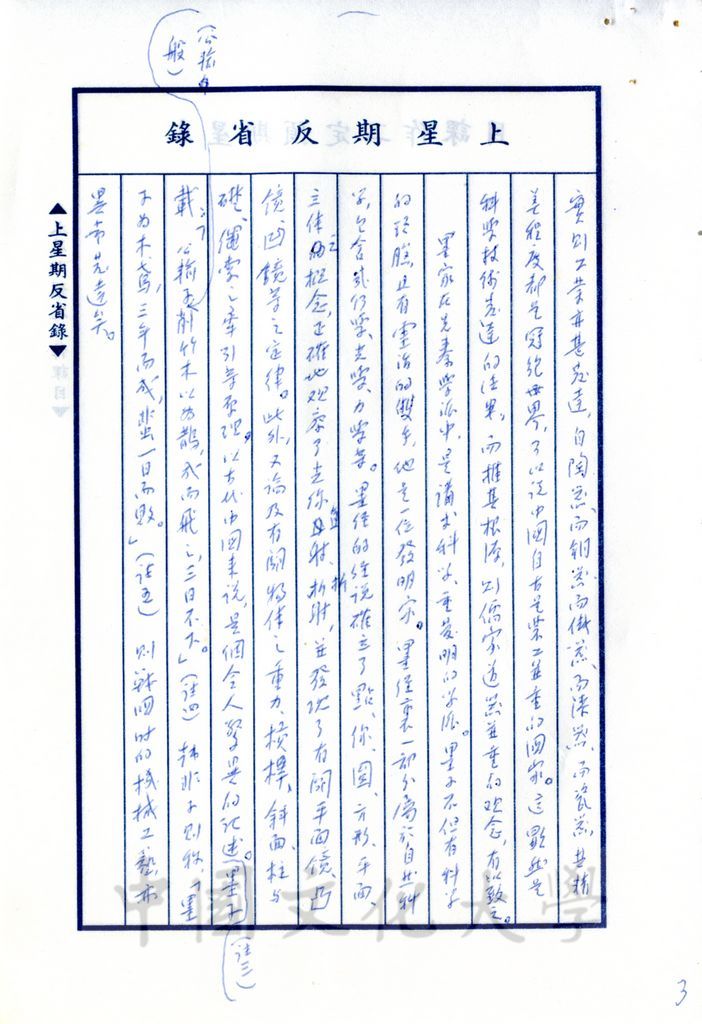 上星期反省錄
實則工業亦甚發達,自陶器、而銅器、而鐵器、而漆器、而瓷器,其精
美程度都是冠絕世界,可以說中國自古是農工並重的國家。這顯然是
科學技術發達的结果,而推其根源,则儒家道器並重的观念,有以致之。
墨家在先秦學派中,是講求科学、重發明的学派。墨子不但有科学
的頭腦,且有靈活的雙手,他是一位發明家。墨经裏一部分属於自然科
学,包含幾何學、光學、力學等。墨经的经说確立了點、线、圆、方形、平面、
立体之概念,正確地观察了光线直射、折射,並發现了有關平面鏡、凸
鏡、凹鏡等之定律。此外,又論及有關物体之重力、槓桿、斜面、柱与
礎、繩索之牽引等原理。以古代中國来说,是個令人驚異的记述。墨子
(註三)
載:「公输子削竹木以為鵲,成而飛之,三日不下。」(註四)韩非子则称「墨
(公输子
般)
子为木鳶,三年而成,蜚一日而敗。」(註五)则战國时的機械工藝亦
異常先達矣。
▲上星期反省錄▼
中國文化大學
3